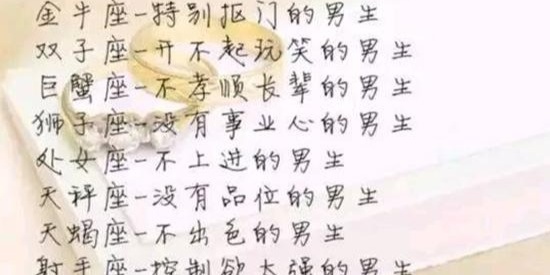 金牛座-特别抠门的男生
双子座-开不起玩笑的男生
巨蟹座-不孝顺长辈的男生
狮子座-没有事业心的男生
处女座-不上进的男生
天秤座-没有品位的男生
天蝎座-不出色的男生
射手座-控制欲太强的男生